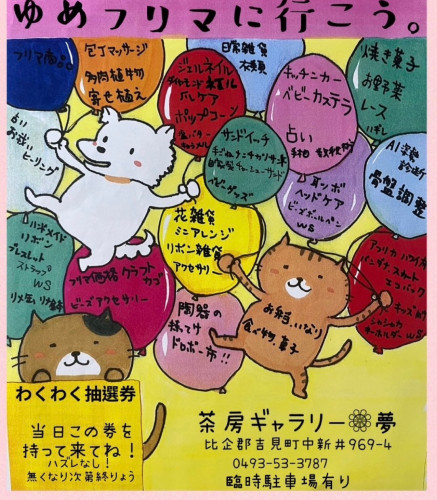 ゆめフリマに行こう。
フリマ商品
包丁マッサージ
多肉植物
寄せ植え
日常雑貨
衣類
ジェルネイル
パルケア
ポップコーン
キッチンカー
ベビーカステラ
占い
焼き菓子
お野菜
レース
占い
お祓い
ヒーリング
サンドイッチ
診断
骨盤調整
耳ツボ
ヘッドケア
ビーズボールペン
WS
花雑貨
ミニアレンジ
リボン雑貨
アクセサリー
リボン
ブレスレット
ストラップ
WS
フリマ価格クラフト
カゴ
ビーズアクセサリー
陶器の
ドロボー市!!
お弁当、いなり
食べ物、菓子
エコバック
キーホルダーWS
わくわく抽選券
当日この券を
持って来てね!
ハズレなし!
無くなり次第終りょう
茶房ギャラリー夢
比企郡吉見町中新井969-4
0493-53-3787
臨時駐車場有り